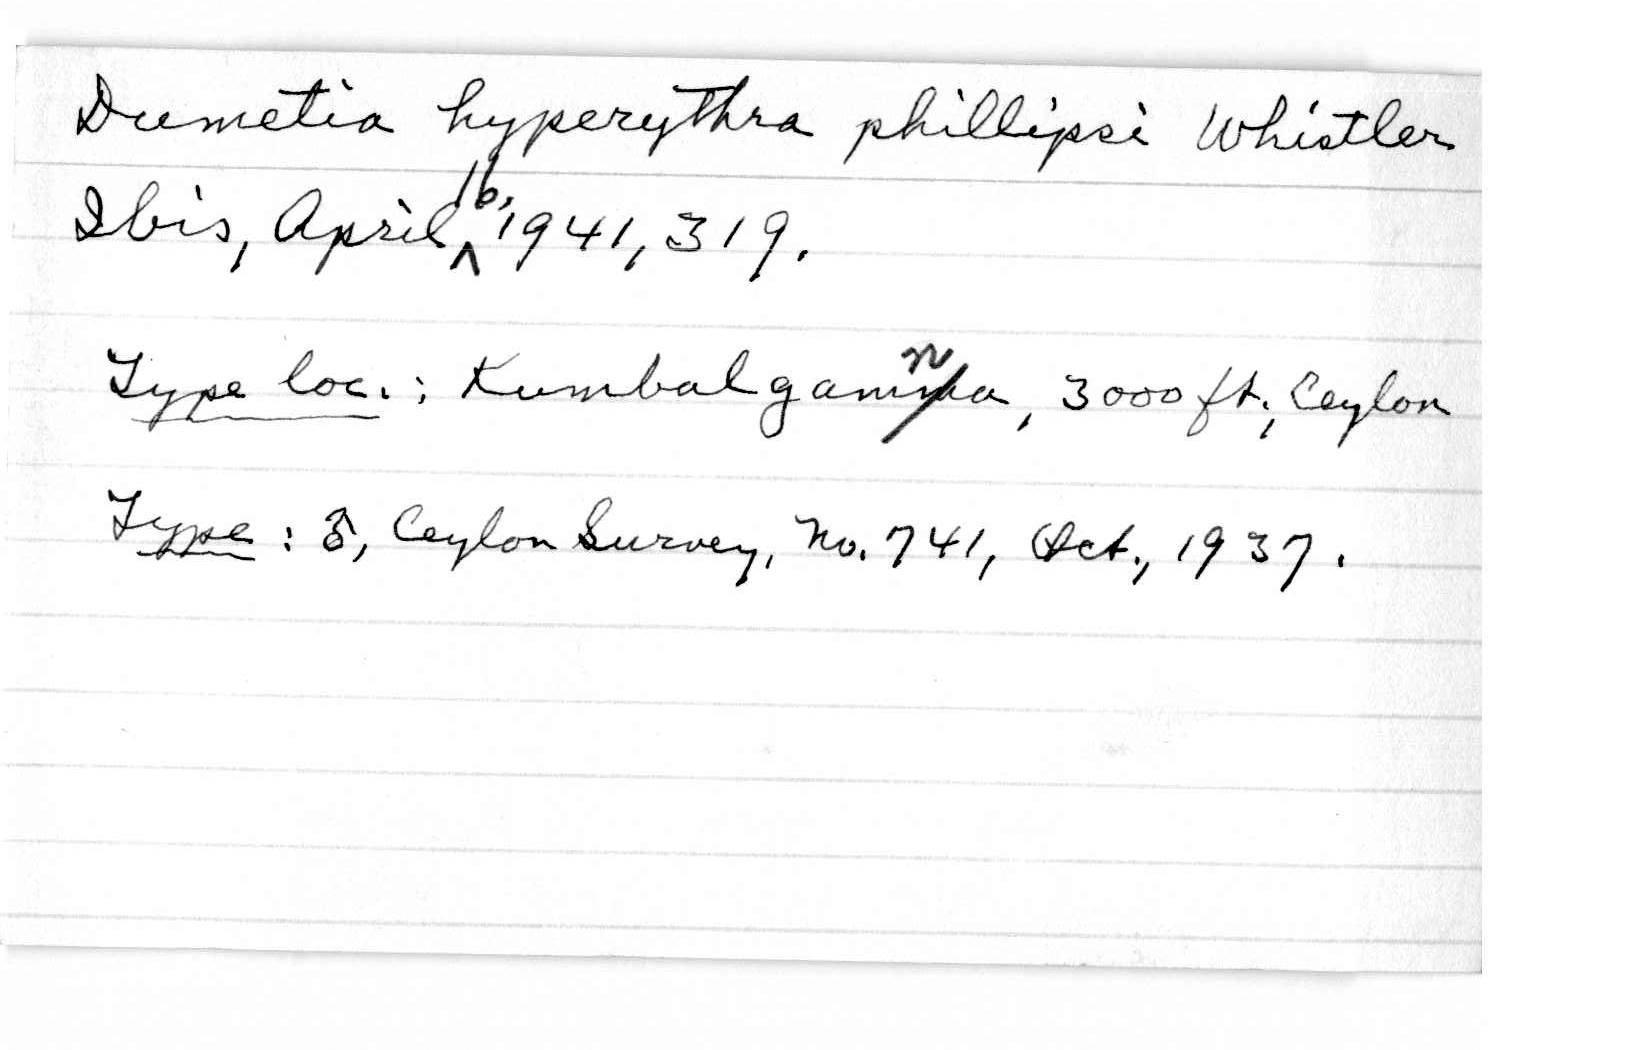 Dumetia hyperythra phillipsi Whistler
Ibis, April 16, 1941, 319.
Type loc.: Kumbalgamna, 3000 ft., Ceylon
Type: ♂, Ceylon Survey, No. 741, Oct., 1937.